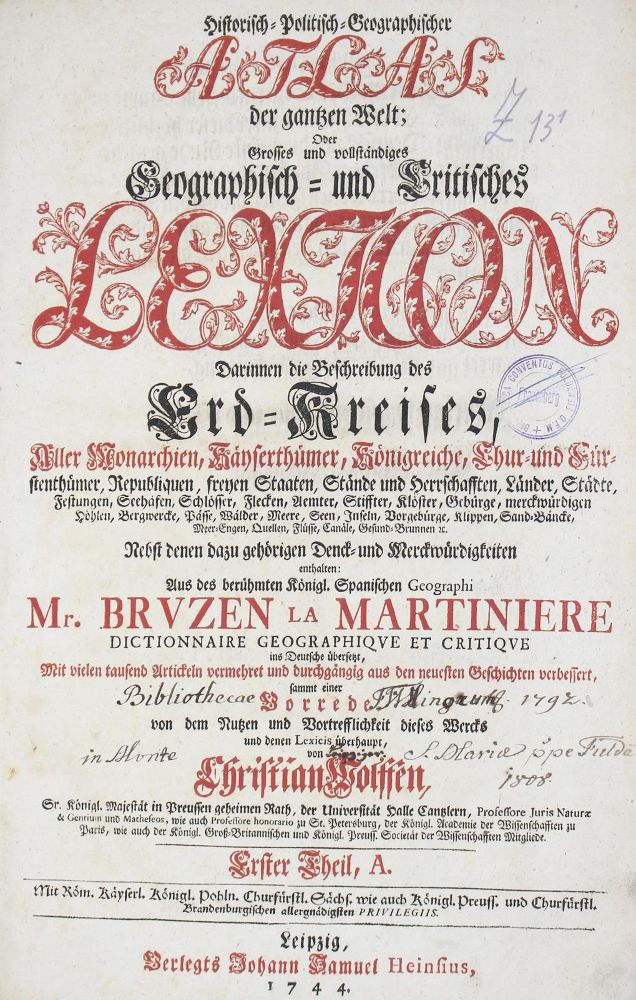 Historisch-Politisch-Geographischer
ATLAS
der gantzen Welt;
Oder
Grosses und vollständiges
Geographisch- und Critisches
LEXICON
Z 13¹
Darinnen die Beschreibung des
Erd-Kreises,
CONVENTUS
Aller Monarchien, Käyserthümer, Königreiche, Chur- und Für-
stenthümer, Republiquen, freyen Staaten, Stände und Herrschafften, Länder, Städte,
Festungen, Seehäfen, Schlösser, Flecken, Aemter, Stiffter, Klöster, Gebürge, merckwürdigen
Höhlen, Bergwercke, Pässe, Wälder, Meere, Seen, Inseln, Vorgebürge, Klippen, Sand-Bäncke,
Meer-Engen, Quellen, Flüsse, Canäle, Gesund-Brunnen ꝛc.
Nebst denen dazu gehörigen Denck- und Merckwürdigkeiten
enthalten:
Aus des berühmten Königl. Spanischen Geographi
Mr. BRVZEN LA MARTINIERE
DICTIONNAIRE GEOGRAPHIQVE ET CRITIQVE
ins Deutsche übersetzt,
Mit vielen tausend Artickeln vermehret und durchgängig aus den neuesten Geschichten verbessert,
sammt einer
Bibliothecae Vorrede 1792.
von dem Nutzen und Vortrefflichkeit dieses Wercks
und denen Lexicis überhaupt,
in Monte von S. Mariae ppe Fulda
1808
Christian Wolffen,
Sr. Königl. Majestät in Preussen geheimen Rath, der Universität Halle Cantzlern, Professore Juris Naturæ
& Gentium und Matheseos, wie auch Professore honorario zu St. Petersburg, der Königl. Academie der Wissenschafften zu
Paris, wie auch der Königl. Groß-Britannischen und Königl. Preuss. Societät der Wissenschafften Mitgliede.
Erster Theil, A.
Mit Röm. Käyserl. Königl. Pohln. Churfürstl. Sächs. wie auch Königl. Preuss. und Churfürstl.
Brandenburgischen allergnädigsten PRIVILEGIIS.
Leipzig,
Verlegts Johann Samuel Heinsius,
1744.